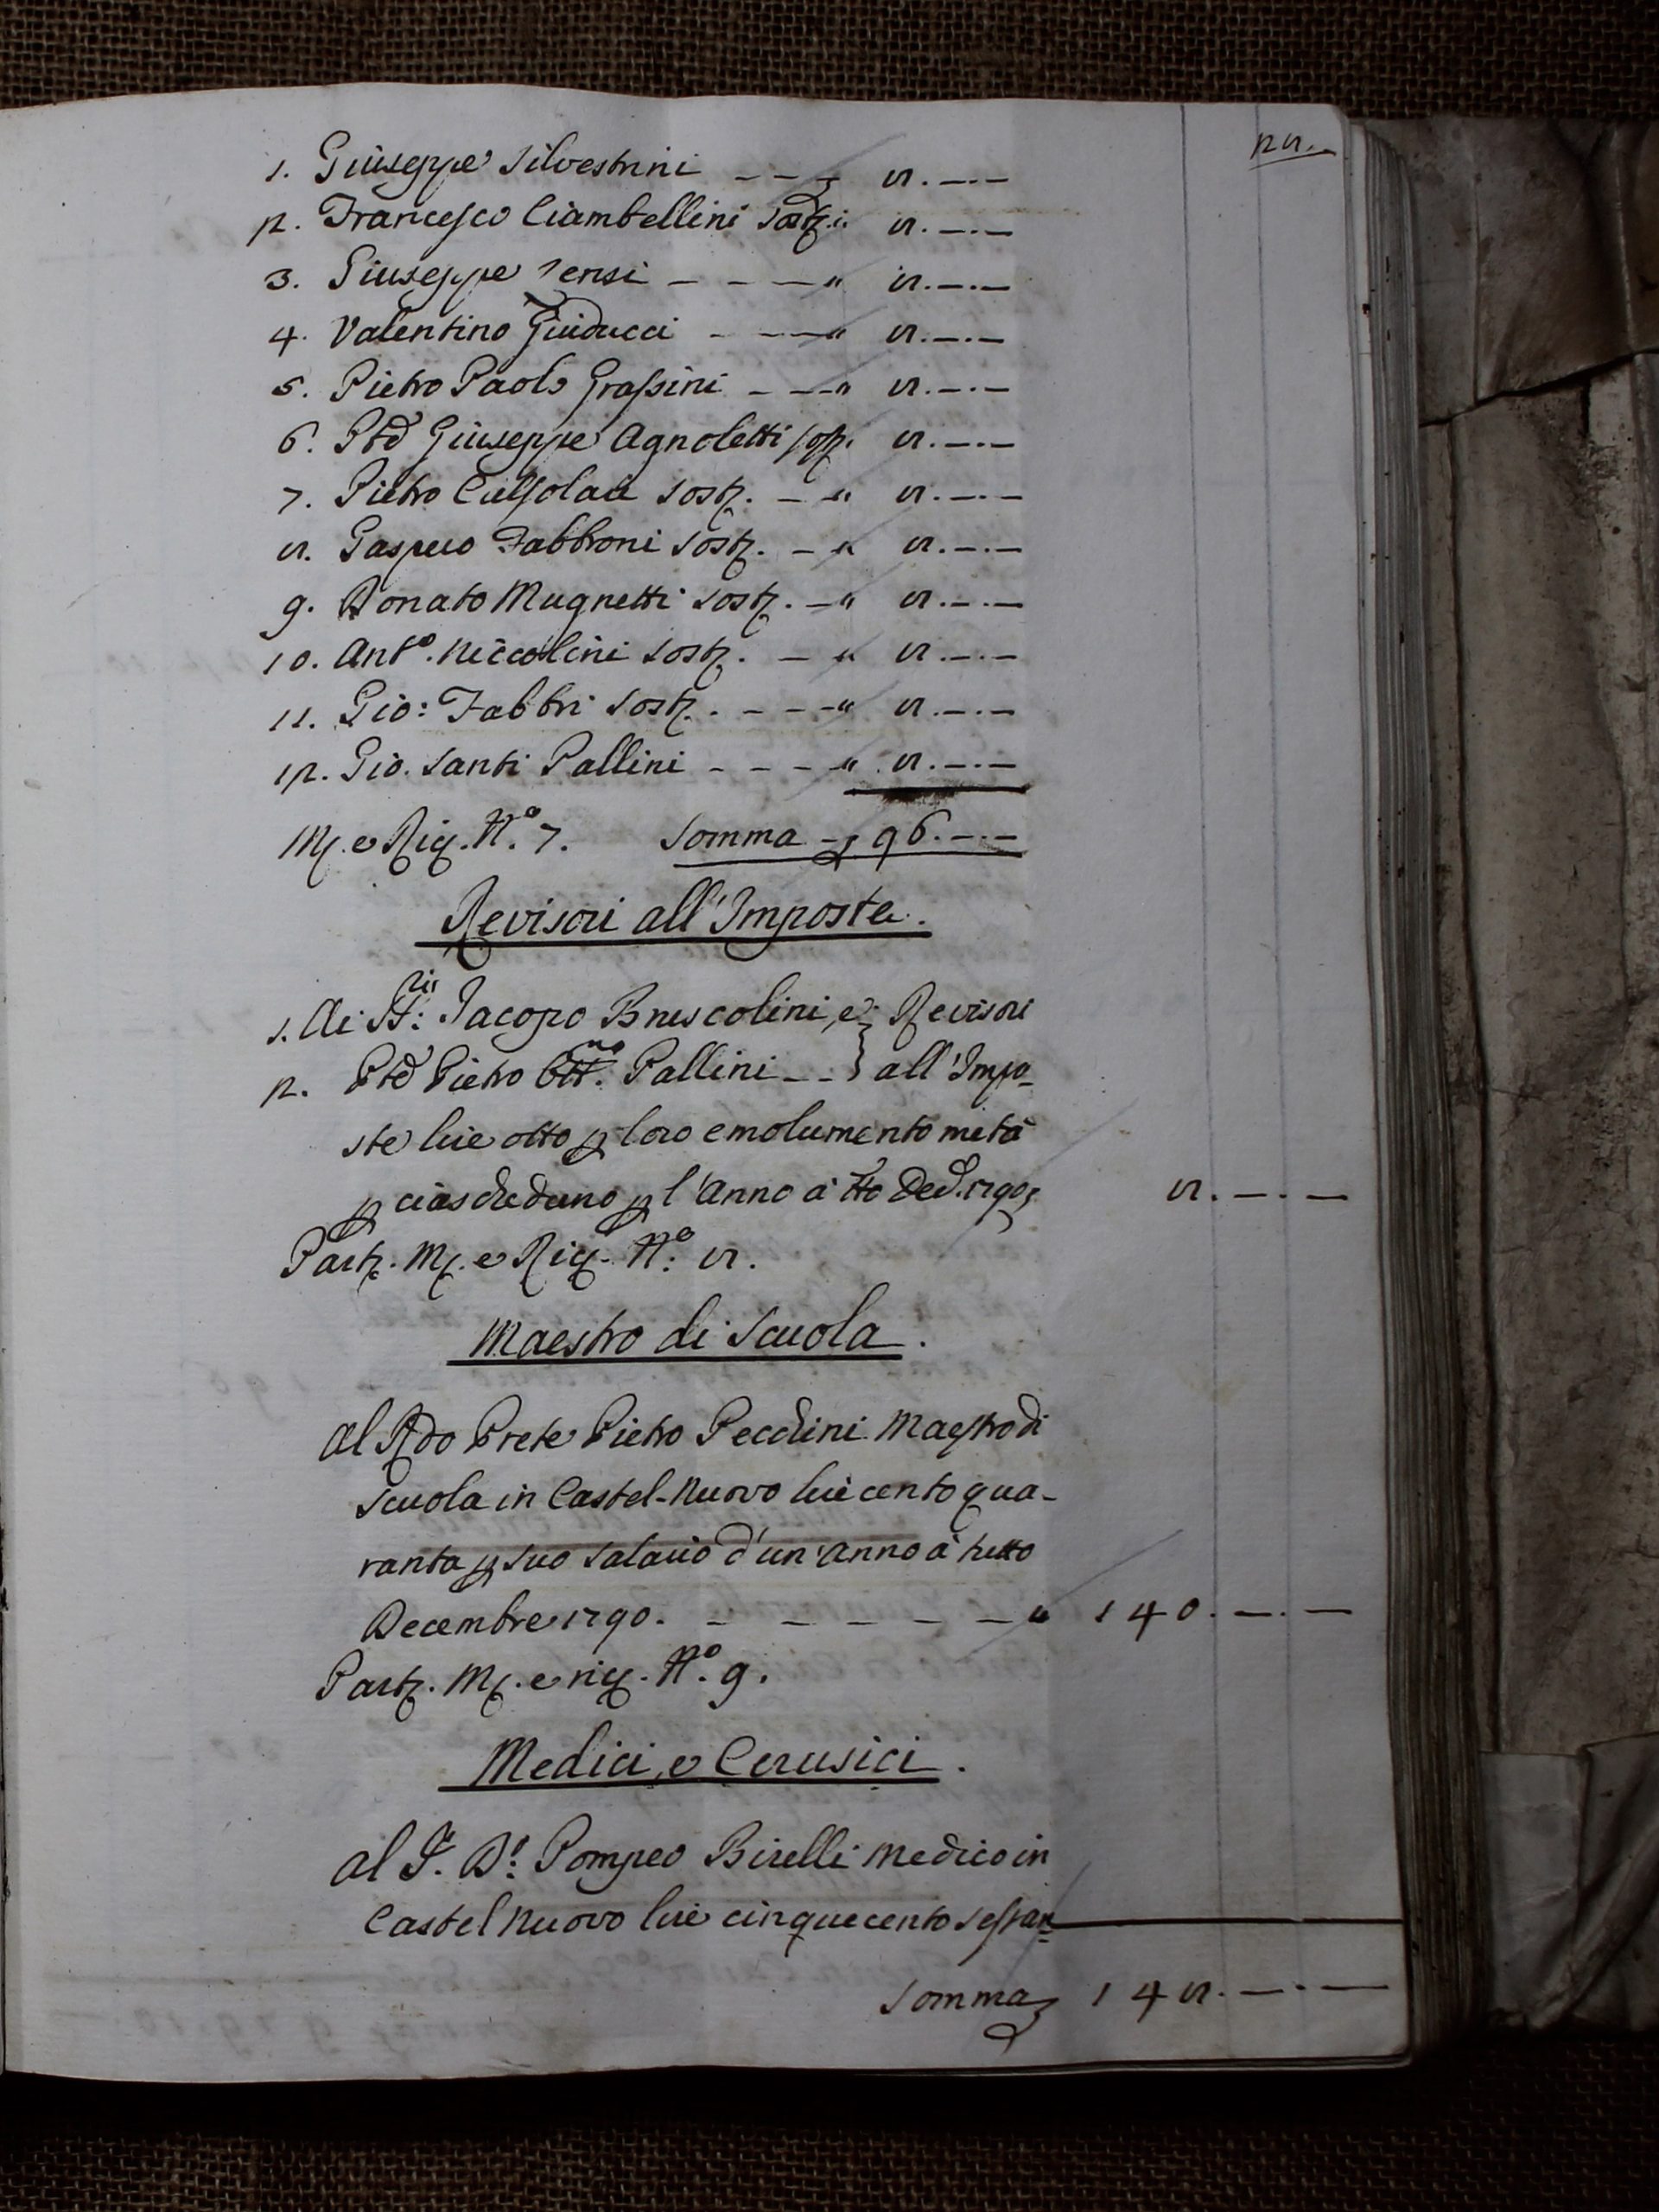 28.
1. Giuseppe Silvestrini --- 8.-.-
2. Francesco Ciambellini Sost.i: 8.-.-
3. Giuseppe Sensi - - -" 8.-.-
4. Valentino Guiducci - - -" 8.-.-
5. Pietro Paolo Grassini - - -" 8.-.-
6. Giuseppe Agnoletti sost. 8.-.-
7. Pietro sost. - " 8.-.-
8. Gaspero Fabbroni sost. - " 8.-.-
9. Donato Mugnetti sost. - " 8.-.-
10. Ant.o Niccolini sost. - " 8.-.-
11. Gio: Fabbri sost. - - -" 8.-.-
12. Gio. Santi Pallini - - - -" 8.-.-
M. e Rig. N.o 7. Somma - 96.-.-
Revisori all'Imposte.
1. Ai SS:ri Jacopo Bruscolini, e Revisori
2. Pietro Pallini -- } all'Impo-
ste lire otto p loro emolumento metà
p ciascheduno p l'Anno a tto Dec. 1790, 8.-.-
Part. M. e Rig. N.o 8.
Maestro di Scuola.
Al Rdo Prete Pietro Pecchini Maestro di
Scuola in Castel-Nuovo lire cento qua-
ranta p suo salario d'un'anno a tutto
Decembre 1790. - - - - - " 140.-.-
Part. M. e rig. N.o 9.
Medici, e Cerusici.
Al S. D.r Pompeo Birelli Medico in
Castel Nuovo lire cinquecento sessan=
Somma 148.-.-